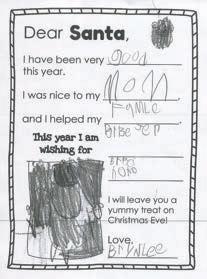 Dear Santa,
I have been very good
this year.
I was nice to my mom
Famle
and I helped my
This year I am
wishing for
I will leave you a
yummy treat on
Christmas Eve!
Love,
Brynlee